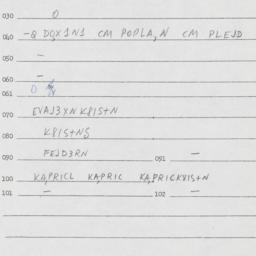 030 0
040 -Q DQX1N1 CM POPLA,N CM PLEJD
050 -
060 -
061 0
070 EVAJ3XN K8IS+N
080 K8IS+NS
090 FEJD3RN 091 -
100 KA,PRICL KA,PRIC KA,PRICK8IS+N
101 - 102 -